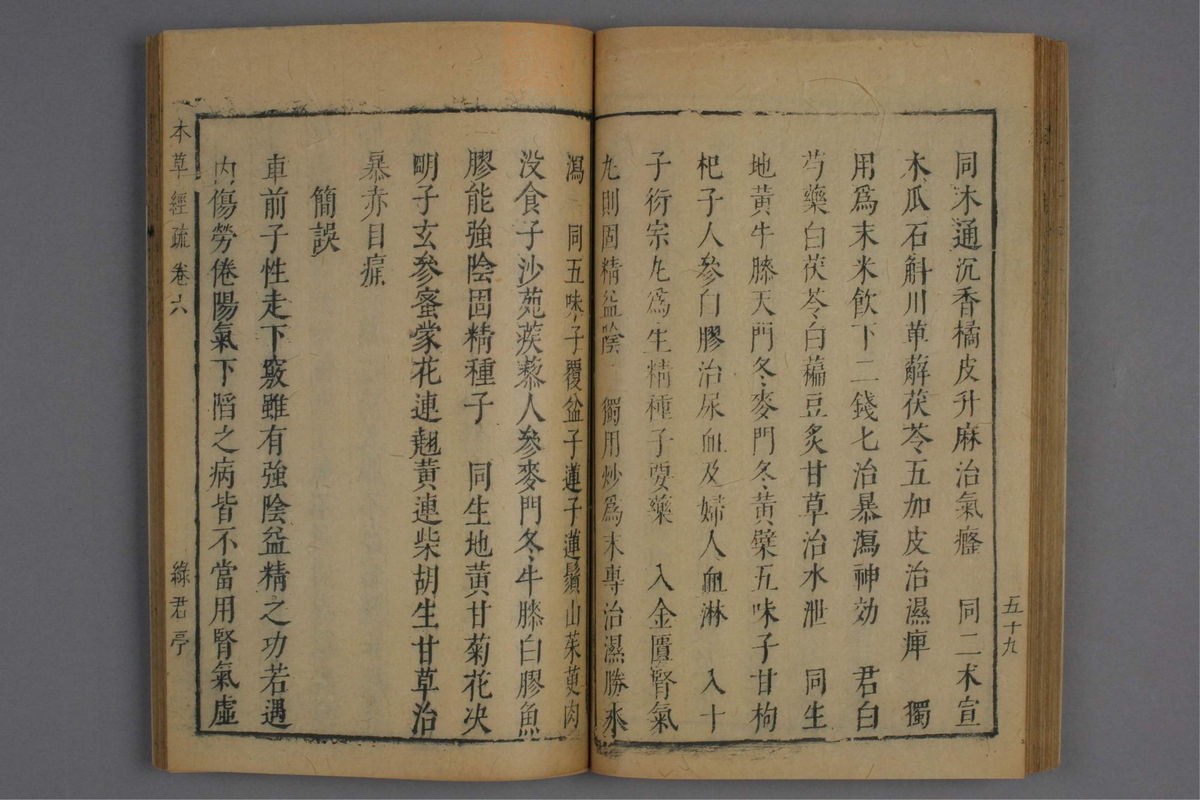 同木通沉香橘皮升麻治氣癃　同二木宣
木瓜石斛川萆薢茯苓五加皮治濕痺　獨
用爲末米飲下二錢七治暴瀉神効　君白
芍藥白茯苓白藊豆炙甘草治水泄　同生
地黃牛膝天門冬麥門冬黃檗五味子甘枸
杞子人參白膠治尿血及婦人血淋　入十
子衍宗丸爲生精種子要藥　入金匱腎氣
丸則固精益陰　獨用炒爲末專治濕勝水
五十九
瀉　同五味子覆盆子蓮子蓮鬚山茱萸肉
没食子沙苑蒺藜人參麥門冬牛膝白膠魚
膠能強陰固精種子　同生地黃甘菊花决
明子玄參蜜蒙花連翹黃連柴胡生甘草治
暴赤目痛
簡誤
車前子性走下竅雖有強陰益精之功若遇
内傷勞倦陽氣下陷之病皆不當用腎氣虛
本草經疏　卷六　綠君亭